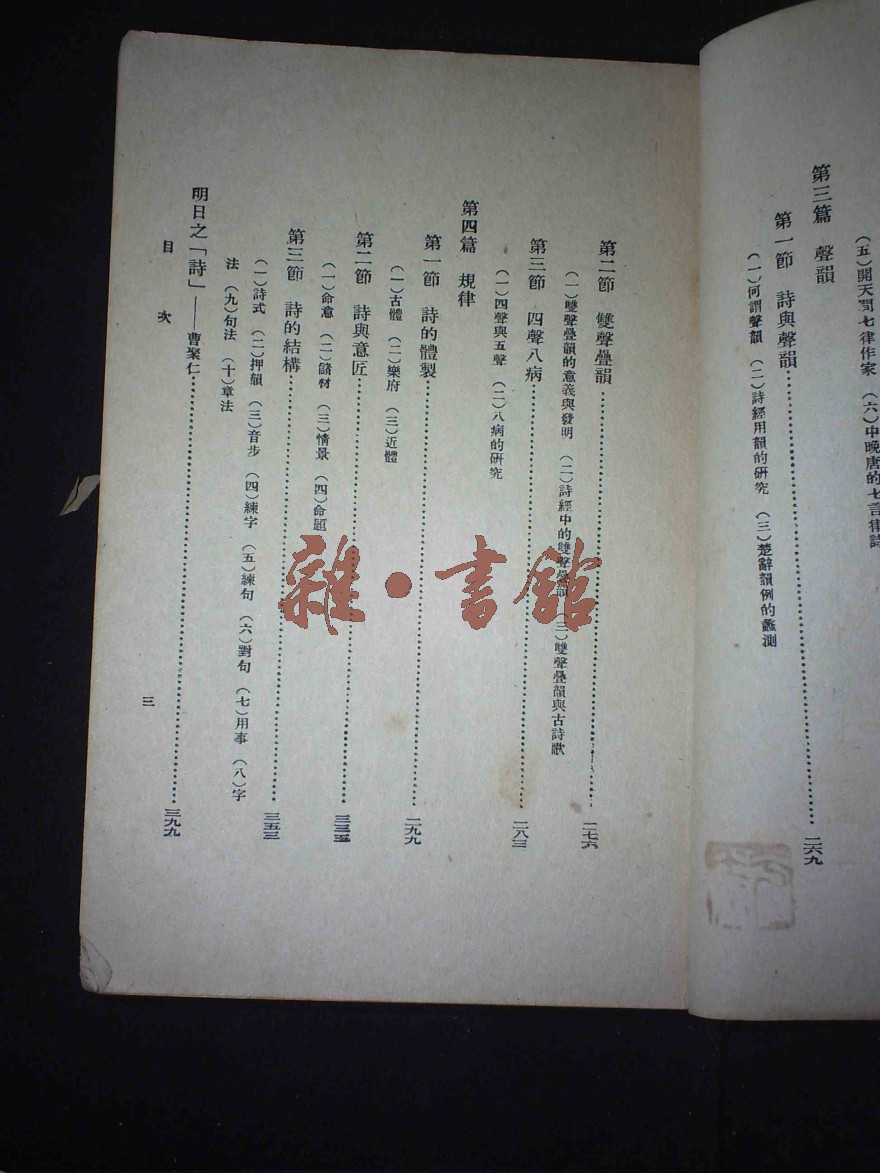 (五)開天間七律作家 (六)中晚唐的七言律詩
第三篇 聲韻
第一節 詩與聲韻…………二六九
(一)何謂聲韻 (二)詩經用韻的研究 (三)楚辭韻例的蠡測
第二節 雙聲疊韻…………二七六
(一)雙聲疊韻的意義與發明 (二)詩經中的雙聲疊韻 (三)雙聲疊韻與古詩歌
第三節 四聲八病…………二八三
(一)四聲與五聲 (二)八病的研究
第四篇 規律
第一節 詩的體製…………二九九
(一)古體 (二)樂府 (三)近體
第二節 詩與意匠…………三三五
(一)命意 (二)儲材 (三)情景 (四)命題
第三節 詩的結構…………三五三
(一)詩式 (二)押韻 (三)音步 (四)練字 (五)練句 (六)對句 (七)用事 (八)字
法 (九)句法 (十)章法
明日之「詩」——曹聚仁…………三九九
目 次
三
雜·書館